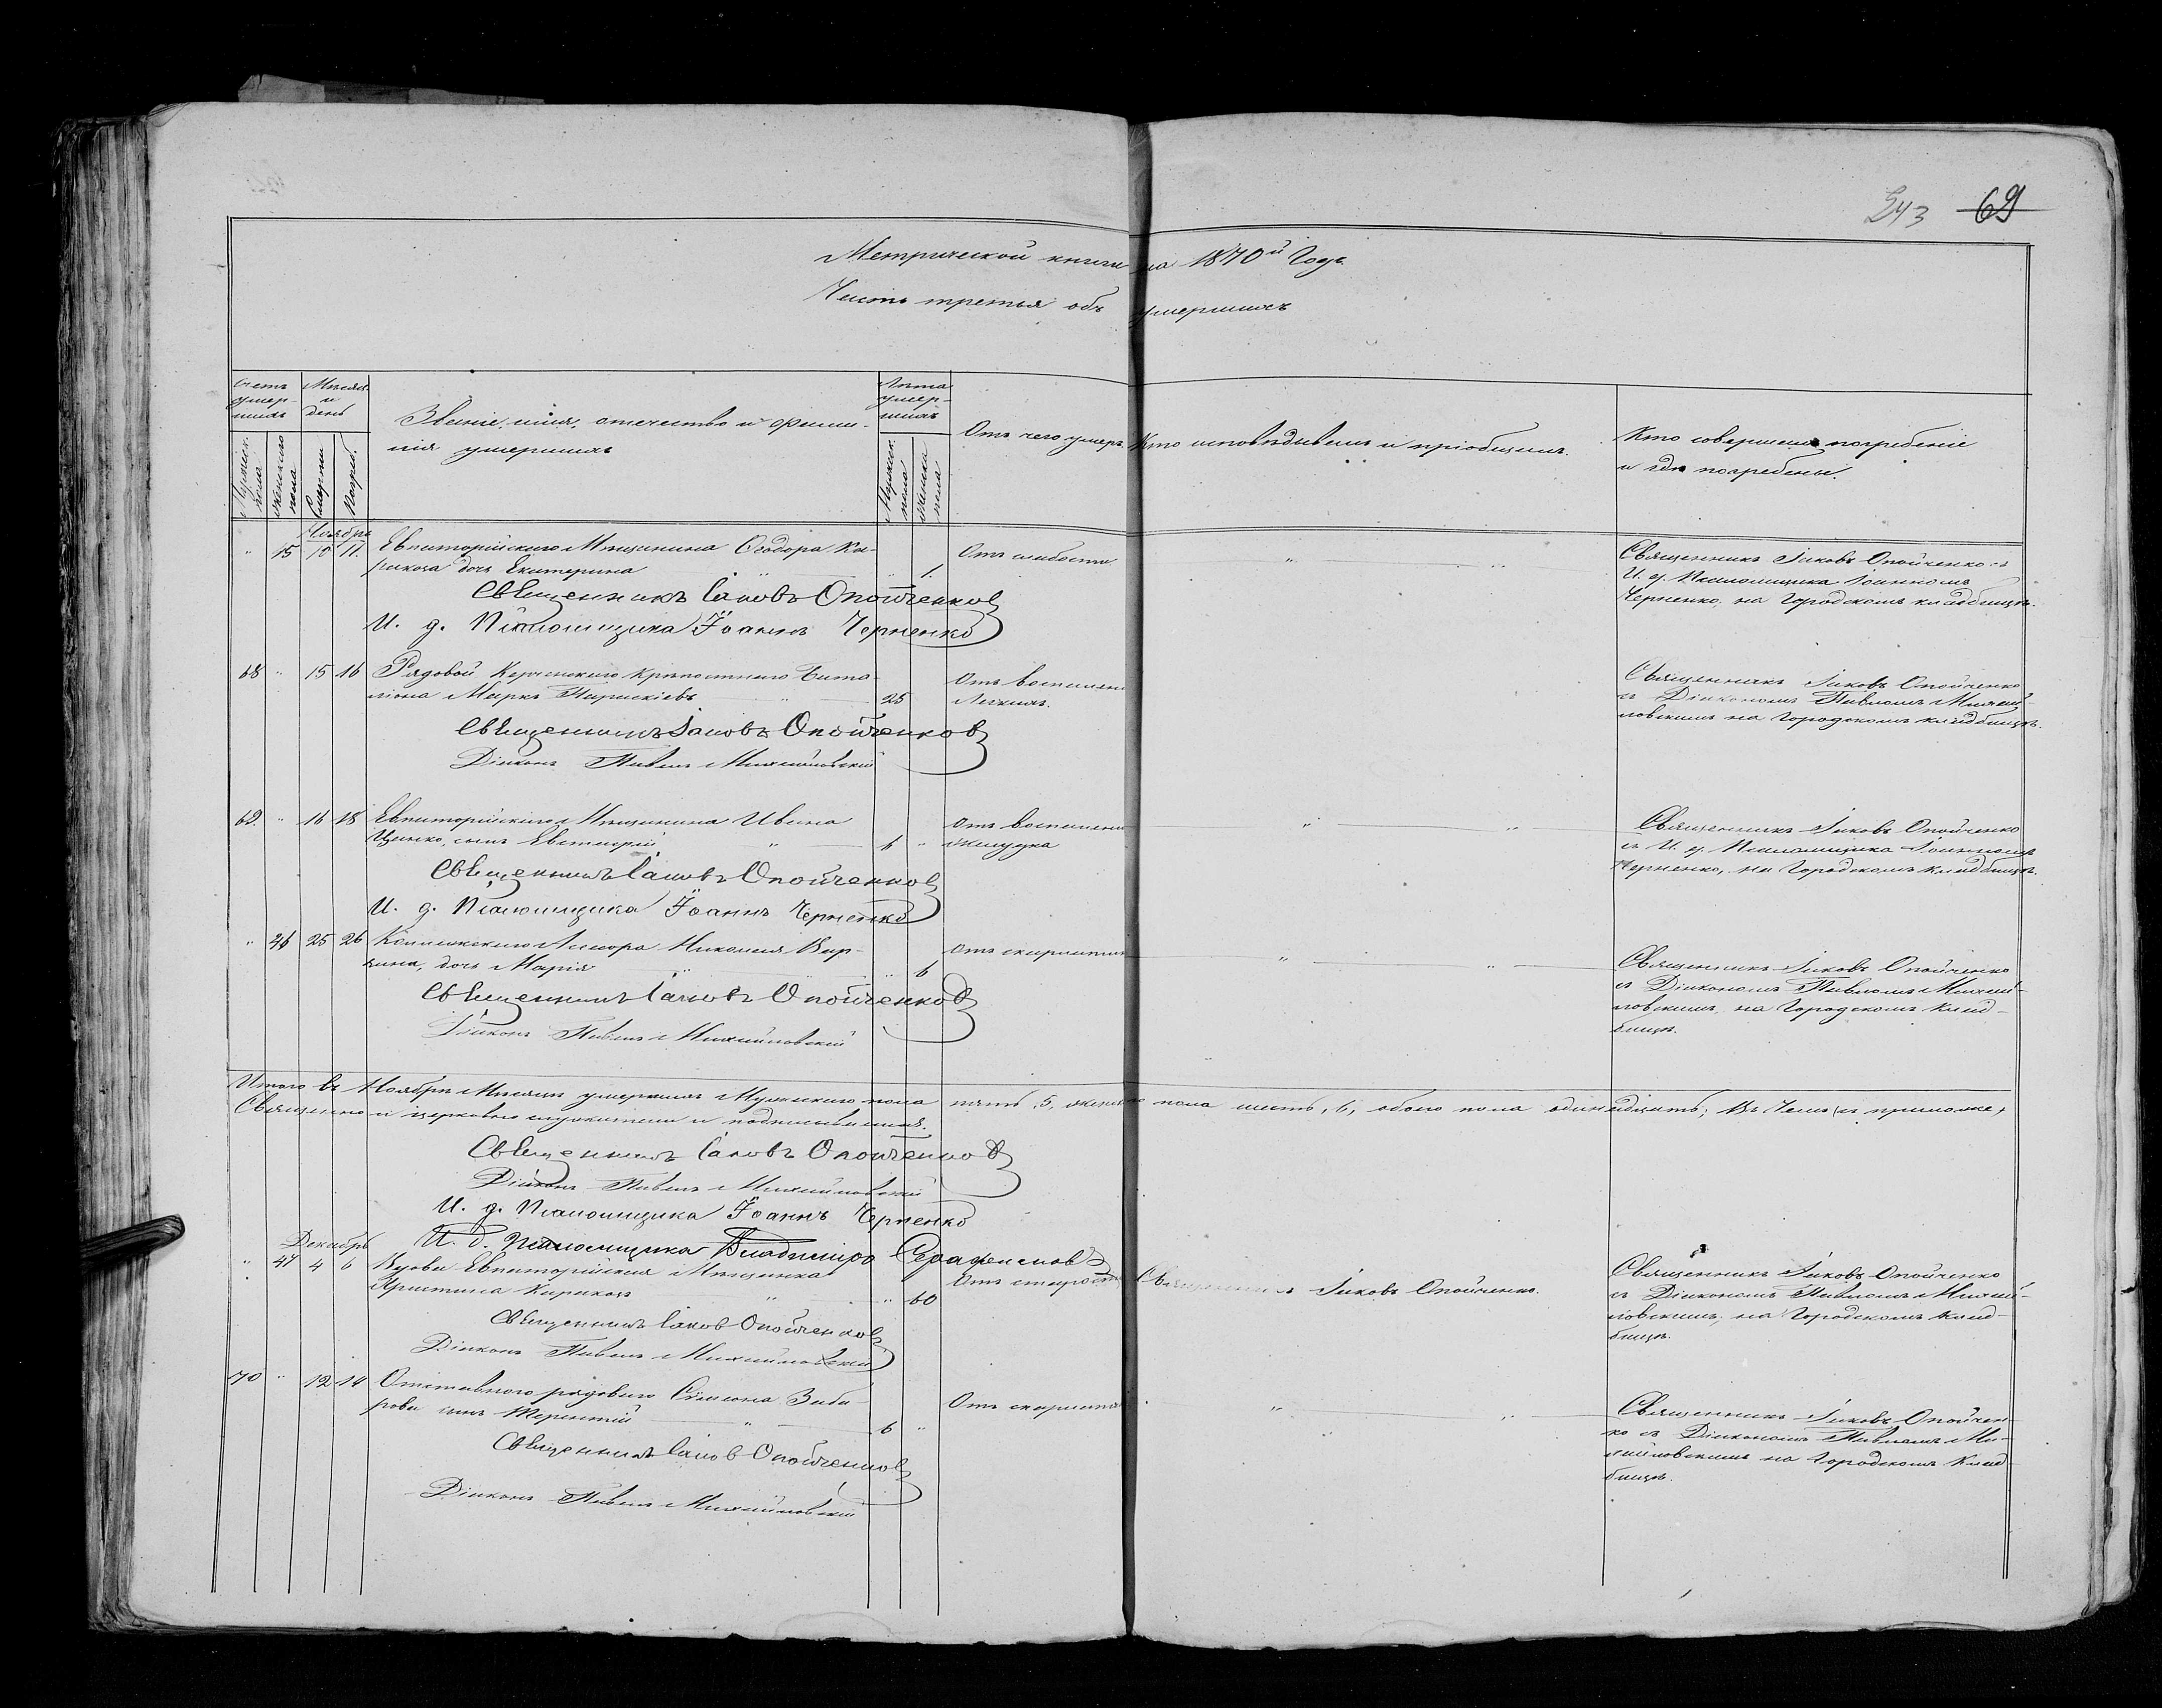 243 69
Метрической книги на 1870й Годъ.
Часть третья объ умершихъ
Счетъ умер-шихъ
Мѣсяцъ и день
Званіе, имя, отечество и фами-
лія умершихъ
Лѣта умер-шихъ
Отъ чего умеръ.
Кто исповѣдывалъ и пріобщалъ.
Кто совершалъ погребеніе
и гдѣ погребены.
Мужеск. пола
женскаго пола
Смерти
Погреб.
Мужеск. пола
женска пола
Ноябрь
" 15 11. Евпаторійскаго Мѣщанина Ѳеодора Ка-
рикоза дочь Екатерина " 1. Отъ слабости " "
Священникъ Іаковъ Опойченко съ
И. д. Псаломщика Іоанномъ
Черненко, на Городскомъ кладбищѣ.
Священникъ Іаковъ Опойченко
И. д. Псаломщика Іоаннъ Черненко
68 " 15 16 Рядовой Керченскаго Крѣпостнаго Бата-
ліона Маркъ 25 Отъ воспаленія
Легкихъ.
Священникъ Іаковъ Опойченко
съ Діакономъ Павломъ Михай-
ловскимъ на Городскомъ кладбищѣ.
Священникъ Іаковъ Опойченко
Діаконъ Павелъ Михайловскій
69. " 16 18 Евпаторійскаго Мѣщанина Ивана
сынъ " 6 " Отъ воспаленія
желудка " "
Священникъ Іаковъ Опойченко
съ И. д. Псаломщика Іоанномъ
Черненко, на Городскомъ кладбищѣ.
Священникъ Іаковъ Опойченко
И. д. Псаломщика Іоаннъ Черненко
" 46 25 26 Николая
дочь Марія " " 6 Отъ скарлатины " "
Священникъ Іаковъ Опойченко
съ Діакономъ Павломъ Михай-
ловскимъ, на Городскомъ клад-
бищѣ.
Священникъ Іаковъ Опойченко
Діаконъ Павелъ Михайловскій
Итого въ Ноябрѣ Мѣсяцѣ умершихъ Мужескаго пола пять, 5, женскаго пола шесть, 6, обоего пола одинадцать; Въ Чемъ
Священно и церковно служители и подписываемся.
Священникъ Іаковъ Опойченко
Діаконъ Павелъ Михайловскій
И. д. Псаломщика Іоаннъ Черненко
И. д. Псаломщика Владиміръ
Декабрь
" 47 4 6 Вдова Евпаторійская Мѣщанка
Христина " " 60 Отъ старости Священникъ Іаковъ Опойченко.
Священникъ Іаковъ Опойченко
съ Діакономъ Павломъ Михай-
ловскимъ, на Городскомъ клад-
бищѣ.
Священникъ Іаковъ Опойченко
Діаконъ Павелъ Михайловскій
70 " 12 14 Отставного рядоваго Симеона Заба-
рова сынъ Терентій " 6 " Отъ скарлатины " "
Священникъ Іаковъ Опойчен-
ко съ Діакономъ Павломъ Ми-
хайловскимъ на Городскомъ клад-
бищѣ.
Священникъ Іаковъ Опойченко
Діаконъ Павелъ Михайловскій